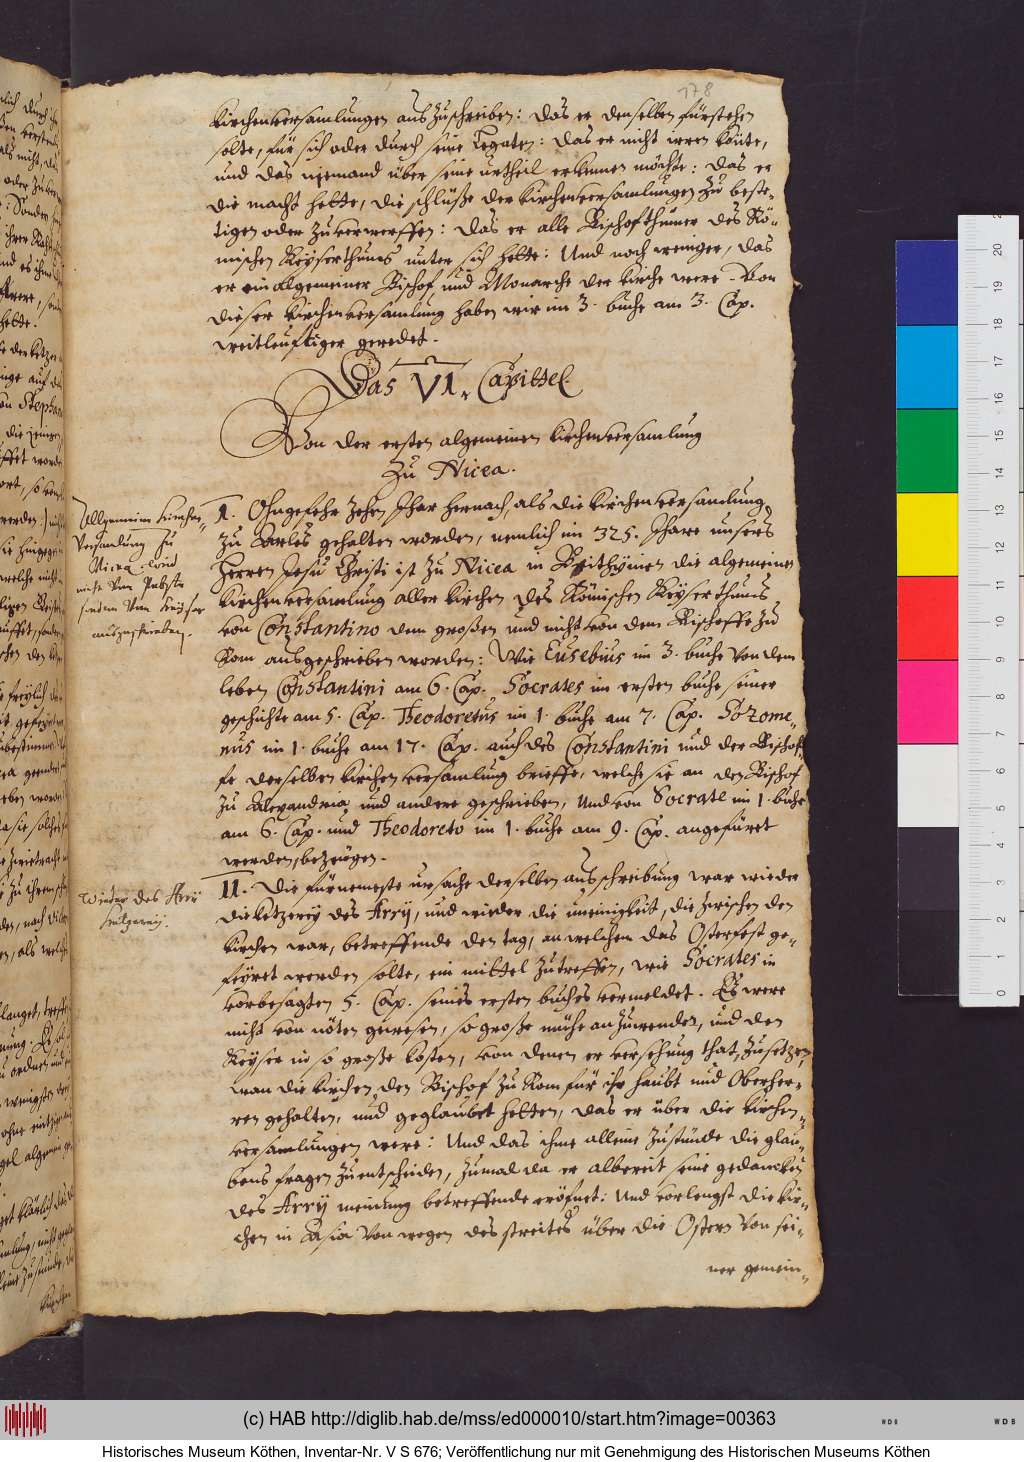 178
kirchenversamlungen auszuschreiben: das er denselben fürstehen
solte, für sich oder durch seine Legaten: das er nicht irren könte,
und das niemand über seine urtheil erkennen möchte: das er
die macht hette, die schlüße der kirchenversamlungen zu beste-
tigen oder zuverwerffen: das er alle Bischofthümer des Rö-
mischen Keyserthums unter sich hette: Und noch weniger, das
er ein algemeiner Bischof und Monarche der kirche were. Von
dieser kirchenversamlung haben wir im 3. buche am 3. Cap.
weitleuftiger geredet.
Das VI. Capittel.
Von der ersten algemeinen kirchenversamlung
zu Nicea.
Allgemeine kirchen-
versamlung zu
Nicea wird
nicht vom Pabste
sondern vom keyser
außgeschrieben.
I. Ohngefehr zehn Jhar hernach, als die kirchenversamlung
zu Arles gehalten worden, nemlich im 325. Jhare unsers
Herren Jesu Christi ist zu Nicea in Bithynien die algemeine
kirchenversamlung aller kirchen des Römischen Keyserthums
von Constantino dem großen und nicht von dem Bischoffe zu
Rom ausgeschrieben worden: Wie Eusebius im 3. buche von dem
leben Constantini am 6. Cap. Socrates im ersten buche seiner
geschichte am 5. Cap. Theodoretus im 1. buche am 7. Cap. Sozome-
nus im 1. buche am 17. Cap. auch des Constantini und der Bischof-
fe derselben kirchenversamlung brieffe, welche sie an den Bischof
zu Alexandria und andere geschrieben, und von Socrate im 1. buche
am 6. Cap. und Theodoreto im 1. buche am 9. Cap. angefüret
werden, bezeugen.
Wieder des Arrij
ketzerey.
II. Die fürnemeste ursache derselben ausschreibung war wieder
die ketzerey des Arrij, und wieder die uneinigkeit, die zwischen den
kirchen war, betreffende den tag, an welchem das Osterfest ge-
feyret werden solte, ein mittel zutreffen, wie Socrates in
vorbesagten 5. Cap. seines ersten buches vermeldet. Es were
nicht von nöten gewesen, so große mühe anzuwenden, und den
Keyser in so große kosten, von denen er versehung that, zusetzen,
wan die kirchen den Bischof zu Rom für ihr haubt und Oberher-
ren gehalten, und geglaubet hetten, das er über die kirchen-
versamlungen were: Und das ihme alleine zustünde die glau-
bens fragen zuentscheiden, zumal da er albereit seine gedancken
des Arrij meinung betreffende eröfnet: Und vorlengst die kir-
chen in Asia von wegen des streites über die Ostern von sei-
ner gemein-
(c) HAB http://diglib.hab.de/mss/ed000010/start.htm?image=00363
Historisches Museum Köthen, Inventar-Nr. V S 676; Veröffentlichung nur mit Genehmigung des Historischen Museums Köthen